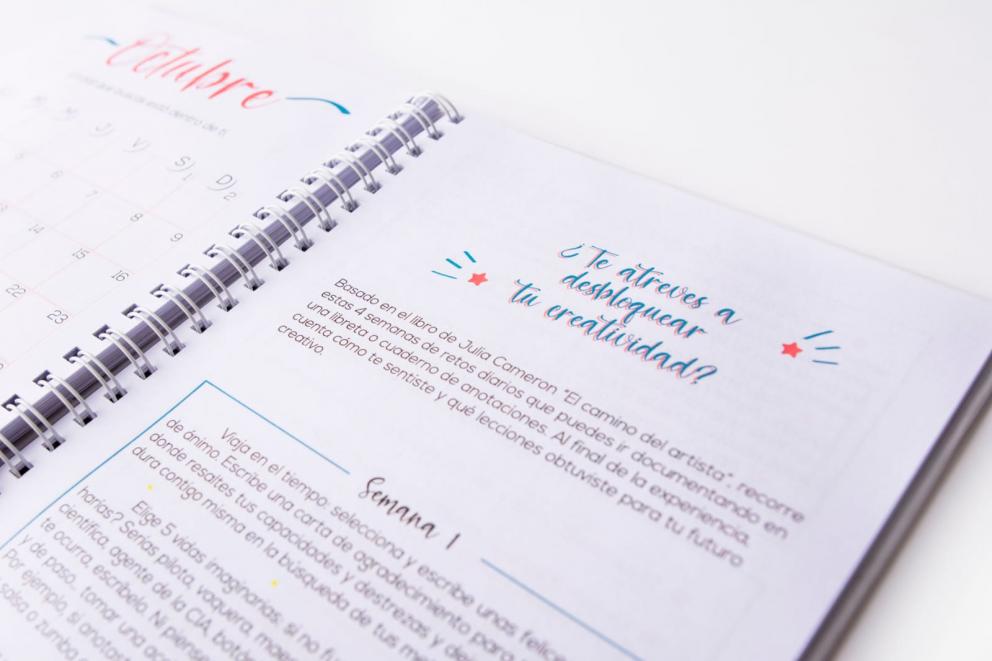 Octubre
está dentro de ti
J V S D
1 2
6 7 8 9
14 15 16
22 23
¿Te atreves a
desbloquear
tu creatividad?
Basado en el libro de Julia Cameron "El camino del artista", recorre
estas 4 semanas de retos diarios que puedes ir documentando en
una libreta o cuaderno de anotaciones. Al final de la experiencia,
cuenta cómo te sentiste y qué lecciones obtuviste para tu futuro
creativo.
Semana 1
Viaja en el tiempo: selecciona y escribe unas felice
de ánimo. Escribe una carta de agradecimiento para
donde resaltes tus capacidades y destrezas y de
dura contigo misma en la búsqueda de tus me
Elige 5 vidas imaginarias: si no fu
harías? Serías pilota, vaquera, mae
científica, agente de la CIA, botá
te ocurra, escríbelo. Ni piense
y de paso... tomar una
por ejemplo, si anotast
salsa o zumba